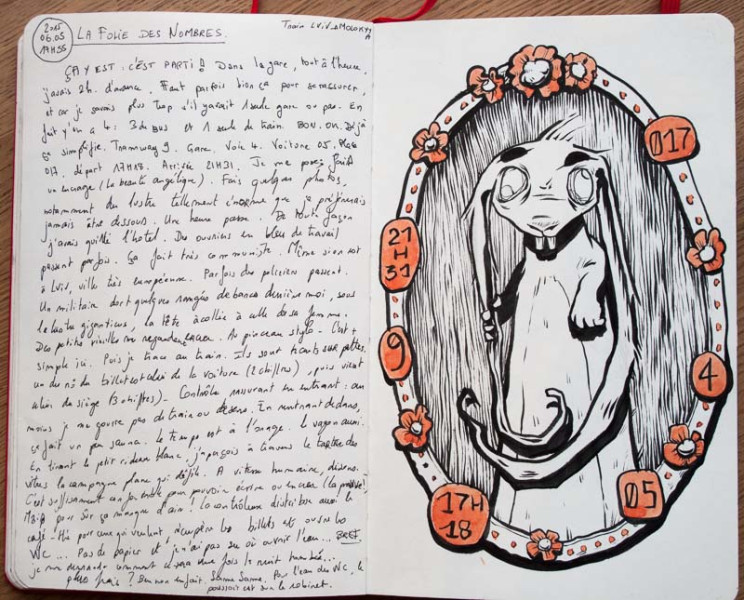 2015
06.05
17H55
LA FOLIE DES NOMBRES.
Train LVIV
ÇA Y EST : C'EST PARTI ! Dans la gare, tout à l'heure,
j'avais 2h. d'avance. Faut parfois bien ça pour se rassurer,
et car je savais plus trop s'il y avait 1 seule gare ou pas. En
fait y'en a 4 : 3 de BUS et 1 seule de train. BON. OK. Déjà
ça simplifie. Tramway 9. Gare. Voie 4. Voiture 05. Place
017. départ 17H18. Arrivée 21H31. Je me pose, finis
un encrage (La beauté angélique). Fais quelques photos,
notamment du lustre tellement énorme que je préfèrerais
jamais être dessous. Une heure passe. De toute façon
j'avais quitté l'hotel. Des ouvriers en bleu de travail
passent parfois. Ça fait très communiste. Même si on est
à Lviv, ville très européenne. Parfois des policiers passent.
Un militaire dort quelques rangées de bancs derrière moi, sous
le lustre gigantesque, la tête accolée à celle de sa femme.
Des petites vieilles me regardent encrer. Au pinceau stylo. C'est +
simple ici. Puis je trace au train. Ils sont tracts sur pattes.
un du n° du billet est celui de la voiture (2 chiffres), puis vient
celui du siège (3 chiffres). Contrôle rassurant en entrant : au
moins je me goure pas de train ou de sens. En rentrant dedans,
ça fait un peu sauna. Le temps est à l'orage. Le wagon aussi.
En tirant le petit rideau blanc, j'aperçois à travers le tartre des
vitres la campagne plane qui défile. A vitesse humaine, disons.
C'est suffisamment pour pouvoir écrire ou encrer (la preuve)!
Mais pour sûr ça manque d'air! Le contrôleur distribue aussi le
café-thé pour ceux qui veulent, récupère les billets et ouvre les
WC... Pas de papier et j'ai pas su où ouvrir l'eau... BREF.
je me demande comment ce sera une fois la nuit tombée...
plus frais ? Ben non en fait. Sauna Sauna. Pour l'eau des WC, il
poussait sur le robinet.
017
21
H
31
9
4
05
17H
18